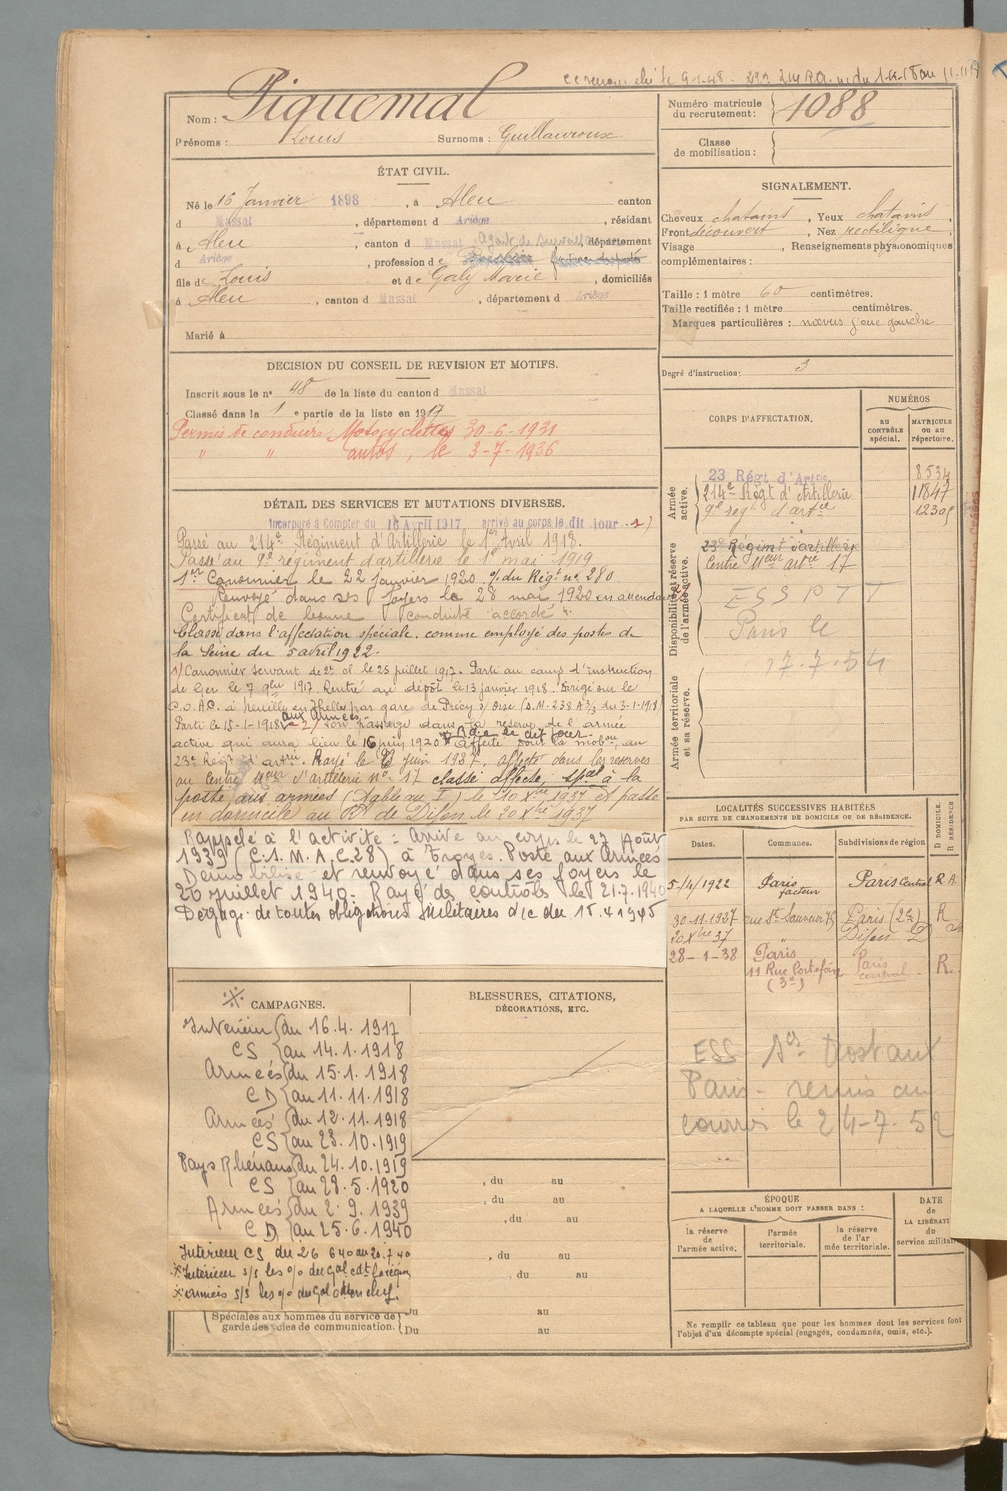 Nom : Piquemal
Prénoms : Louis Surnoms : Guillauroux
Numéro matricule du recrutement : 1088
Classe de mobilisation :
ÉTAT CIVIL.
Né le 16 Janvier 1898, à Aleu canton
d Massat, département d Ariège, résidant
à Aleu, canton d Massat, département
d Ariège, profession de Agent de
fils de Louis et de Galy Marie, domiciliés
à Aleu, canton d Massat, département d Ariège
Marié à
SIGNALEMENT.
Cheveux chatains, Yeux chatains,
Front découvert, Nez rectiligne,
Visage , Renseignements physionomiques
complémentaires :
Taille : 1 mètre 60 centimètres.
Taille rectifiée : 1 mètre centimètres.
Marques particulières : nœvus joue gauche
Degré d'instruction : 3
DECISION DU CONSEIL DE REVISION ET MOTIFS.
Inscrit sous le n° 48 de la liste du canton d Massat
Classé dans la 1e partie de la liste en 1917
Permis de conduire Motocyclettes 30-6-1931
" " autos, le 3-7-1936
CORPS D'AFFECTATION.
NUMÉROS
AU CONTRÔLE spécial.
MATRICULE ou au répertoire.
Armée active.
23 Régt d'Artrie 8534
214e Régt d'Artillerie 11847
9e regt d'artie
Disponibilité et réserve de l'armée active.
23e Régiment d'artillerie
Centre art 17
ESS PTT
Paris le
17.7.54
Armée territoriale et sa réserve.
DÉTAIL DES SERVICES ET MUTATIONS DIVERSES.
Incorporé à Compter du 16 Avril 1917, arrivé au corps le dit jour 1)
Passé au 214e Régiment d'Artillerie le 1er Avril 1918.
Passé au 9e régiment d'artillerie le 1er mai 1919
1er Canonnier le 22 janvier 1920 o/ du Régt n° 280
Renvoyé dans ses foyers le 28 mai 1920 en attendant
Certificat de bonne conduite accordé.
Classé dans l'affectation spéciale, comme employé des postes de
la Seine du 5 avril 1922.
1) Canonnier servant de 2e cl le 25 juillet 1917. Parti au camp d'instruction
de Ger le 7 9bre 1917. Rentré au dépôt le 13 janvier 1918. Dirigé sur le
C.O.A.C. à Neuilly en Thelle par gare de Précy s/ Oise (D.M. 238 A 2/3 du 3-1-1918)
Parti le 15-1-1918 aux Armées 2) Son passage dans la réserve de l'armée
active qui aura lieu le 16 juin 1920 Affecté pour la mobon au
23e Régt d'artie. Rayé le juin 1937, affecté dans les reserves
au Centre d'artillerie n° 17 classé affecté spal à la
poste aux armées (Tableau I) le 10 Xbre 1937 et passé
en domicile au Rt de Dijon le 20 Xbre 1937
Rappelé à l'activité : Arrivé au corps le 27 Août
1939 (C.1. M.A.C.28) à Troyes. Poste aux Armées
Démobilisé et renvoyé dans ses foyers le
20 juillet 1940. Rayé des contrôles le 21.7.1940
Dégagé de toutes obligations militaires
LOCALITÉS SUCCESSIVES HABITÉES
PAR SUITE DE CHANGEMENTS DE DOMICILE OU DE RÉSIDENCE.
Dates. Communes. Subdivisions de région D DOMICILE. R RÉSIDENCE
5/4/1922 Paris facteur Paris Central R.A.
30-11-1937 rue St Sauveur 75 Paris (2e) R
20 Xbre 37 " Dijon D
28-1-38 Paris Paris central R.
11 Rue Portefoin
(3e)
ESS Paris - remis au
courrier le 24-7-52
CAMPAGNES.
Intérieur {du 16.4.1917
CS {au 14.1.1918
Armées {du 15.1.1918
CD {au 11.11.1918
Armées {du 12.11.1918
CS {au 23.10.1919
Pays Rhénans {du 24.10.1919
CS {au 28.5.1920
Armées {du 2.9.1939
CD {au 25.6.1940
Intérieur CS du 26 6 40 au 20.7.40
Spéciales aux hommes du service de garde des voies de communication. {Du au
Du au
BLESSURES, CITATIONS,
DÉCORATIONS, ETC.
, du au
, du au
, du au
, du au
, du au
ÉPOQUE
A LAQUELLE L'HOMME DOIT PASSER DANS :
la réserve de l'armée active.
l'armée territoriale.
la réserve de l'armée territoriale.
DATE de LA LIBÉRATI du service militair
Ne remplir ce tableau que pour les hommes dont les services font
l'objet d'un décompte spécial (engagés, condamnés, omis, etc.).